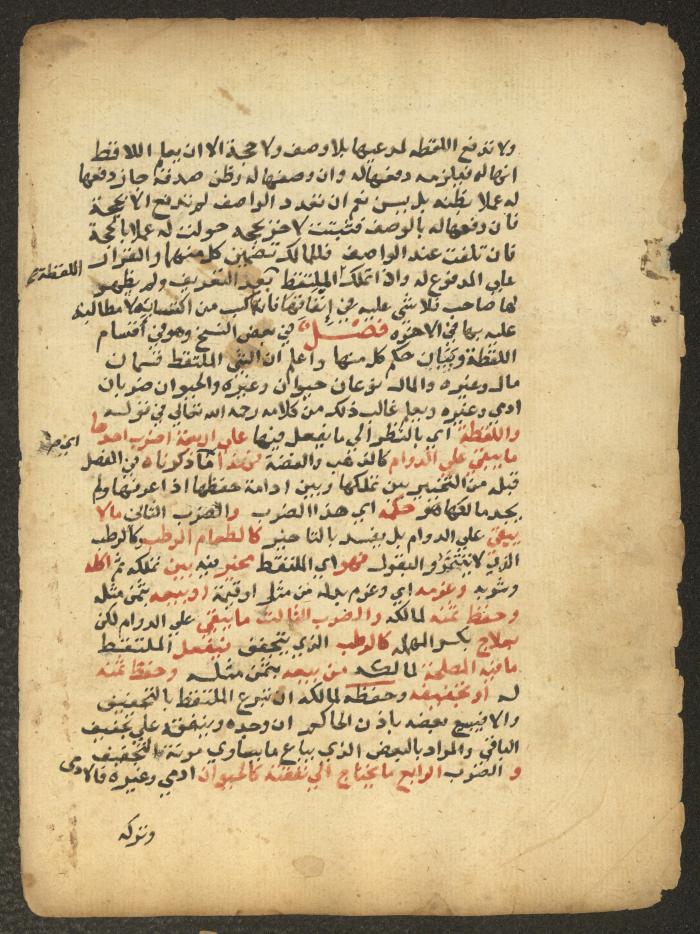 ولا تدفع اللقطه لمدعيها بلا وصف ولا حجة الا ان يعلم اللاقط
انها له فيلزمه دفعها له وان وصفها له وظن صدقه جاز دفعها
له عملا بظنه بل يسن نعم ان تعدد الواصف لم تدفع الا بحجة
فان دفعها له بالوصف فثبتت لاخر بحجة حولت له عملا بالحجة
فان تلفت عند الواصف فللمالك تضمين كل منهما والقرار
علي المدفوع له واذا تملك الملتقط بعد التعريف ولم يظهر
اللقطة
لها صاحب فلا شي عليه في إنفاقها فانها كسب من اكتسابه لا مطالبة
عليه بها في الاخره فصل في بعض النسخ وهو في أقسام
اللقطة وبيان حكم كل منها واعلم ان الشي الملتقط قسمان
مال وغيره والمال نوعان حيوان وغيره والحيوان ضربان
ادمي وغيره ويعلم غالب ذلك من كلامه رحمه الله تعالي في قوله
واللقطة اي بالنظر الي ما يفعل فيها علي اربعة اضرب احدها
ما يبقي علي الدوام كالذهب والفضة فهذا اي ما ذكرناه في الفصل
قبله من التخيير بين تملكها وبين ادامة حفظها اذا عرفها ولم
يجد مالكها هو حكمه اي هذا الضرب والضرب الثاني ما لا
يبقي علي الدوام بل يفسد بالتاخير كالطعام الرطب كالرطب
الذي لا يتتمر والبقول فهو اي الملتقط مخير فيه بين تملكه ثم اكله
وشربه وغرمه اي وغرم بدله من مثل او قيمة او بيعه بثمن مثله
وحفظ ثمنه لمالكه والضرب الثالث ما يبقي علي الدوام لكن
بعلاج بكسر المهمله كالرطب الذي يتجفف فيفعل الملتقط
ما فيه المصلحة لمالكه من بيعه بثمن مثله وحفظ ثمنه
له او تجفيفه وحفظه لمالكه ان تبرع الملتقط بالتجفيف
والا فيبيع بعضه باذن الحاكم ان وجده وينفقه علي تجفيف
الباقي والمراد بالبعض الذي يباع ما يساوي مونة التجفيف
و الضرب الرابع ما يحتاج الي نفقته كالحيوان ادمي وغيره فالادمي
وتركه